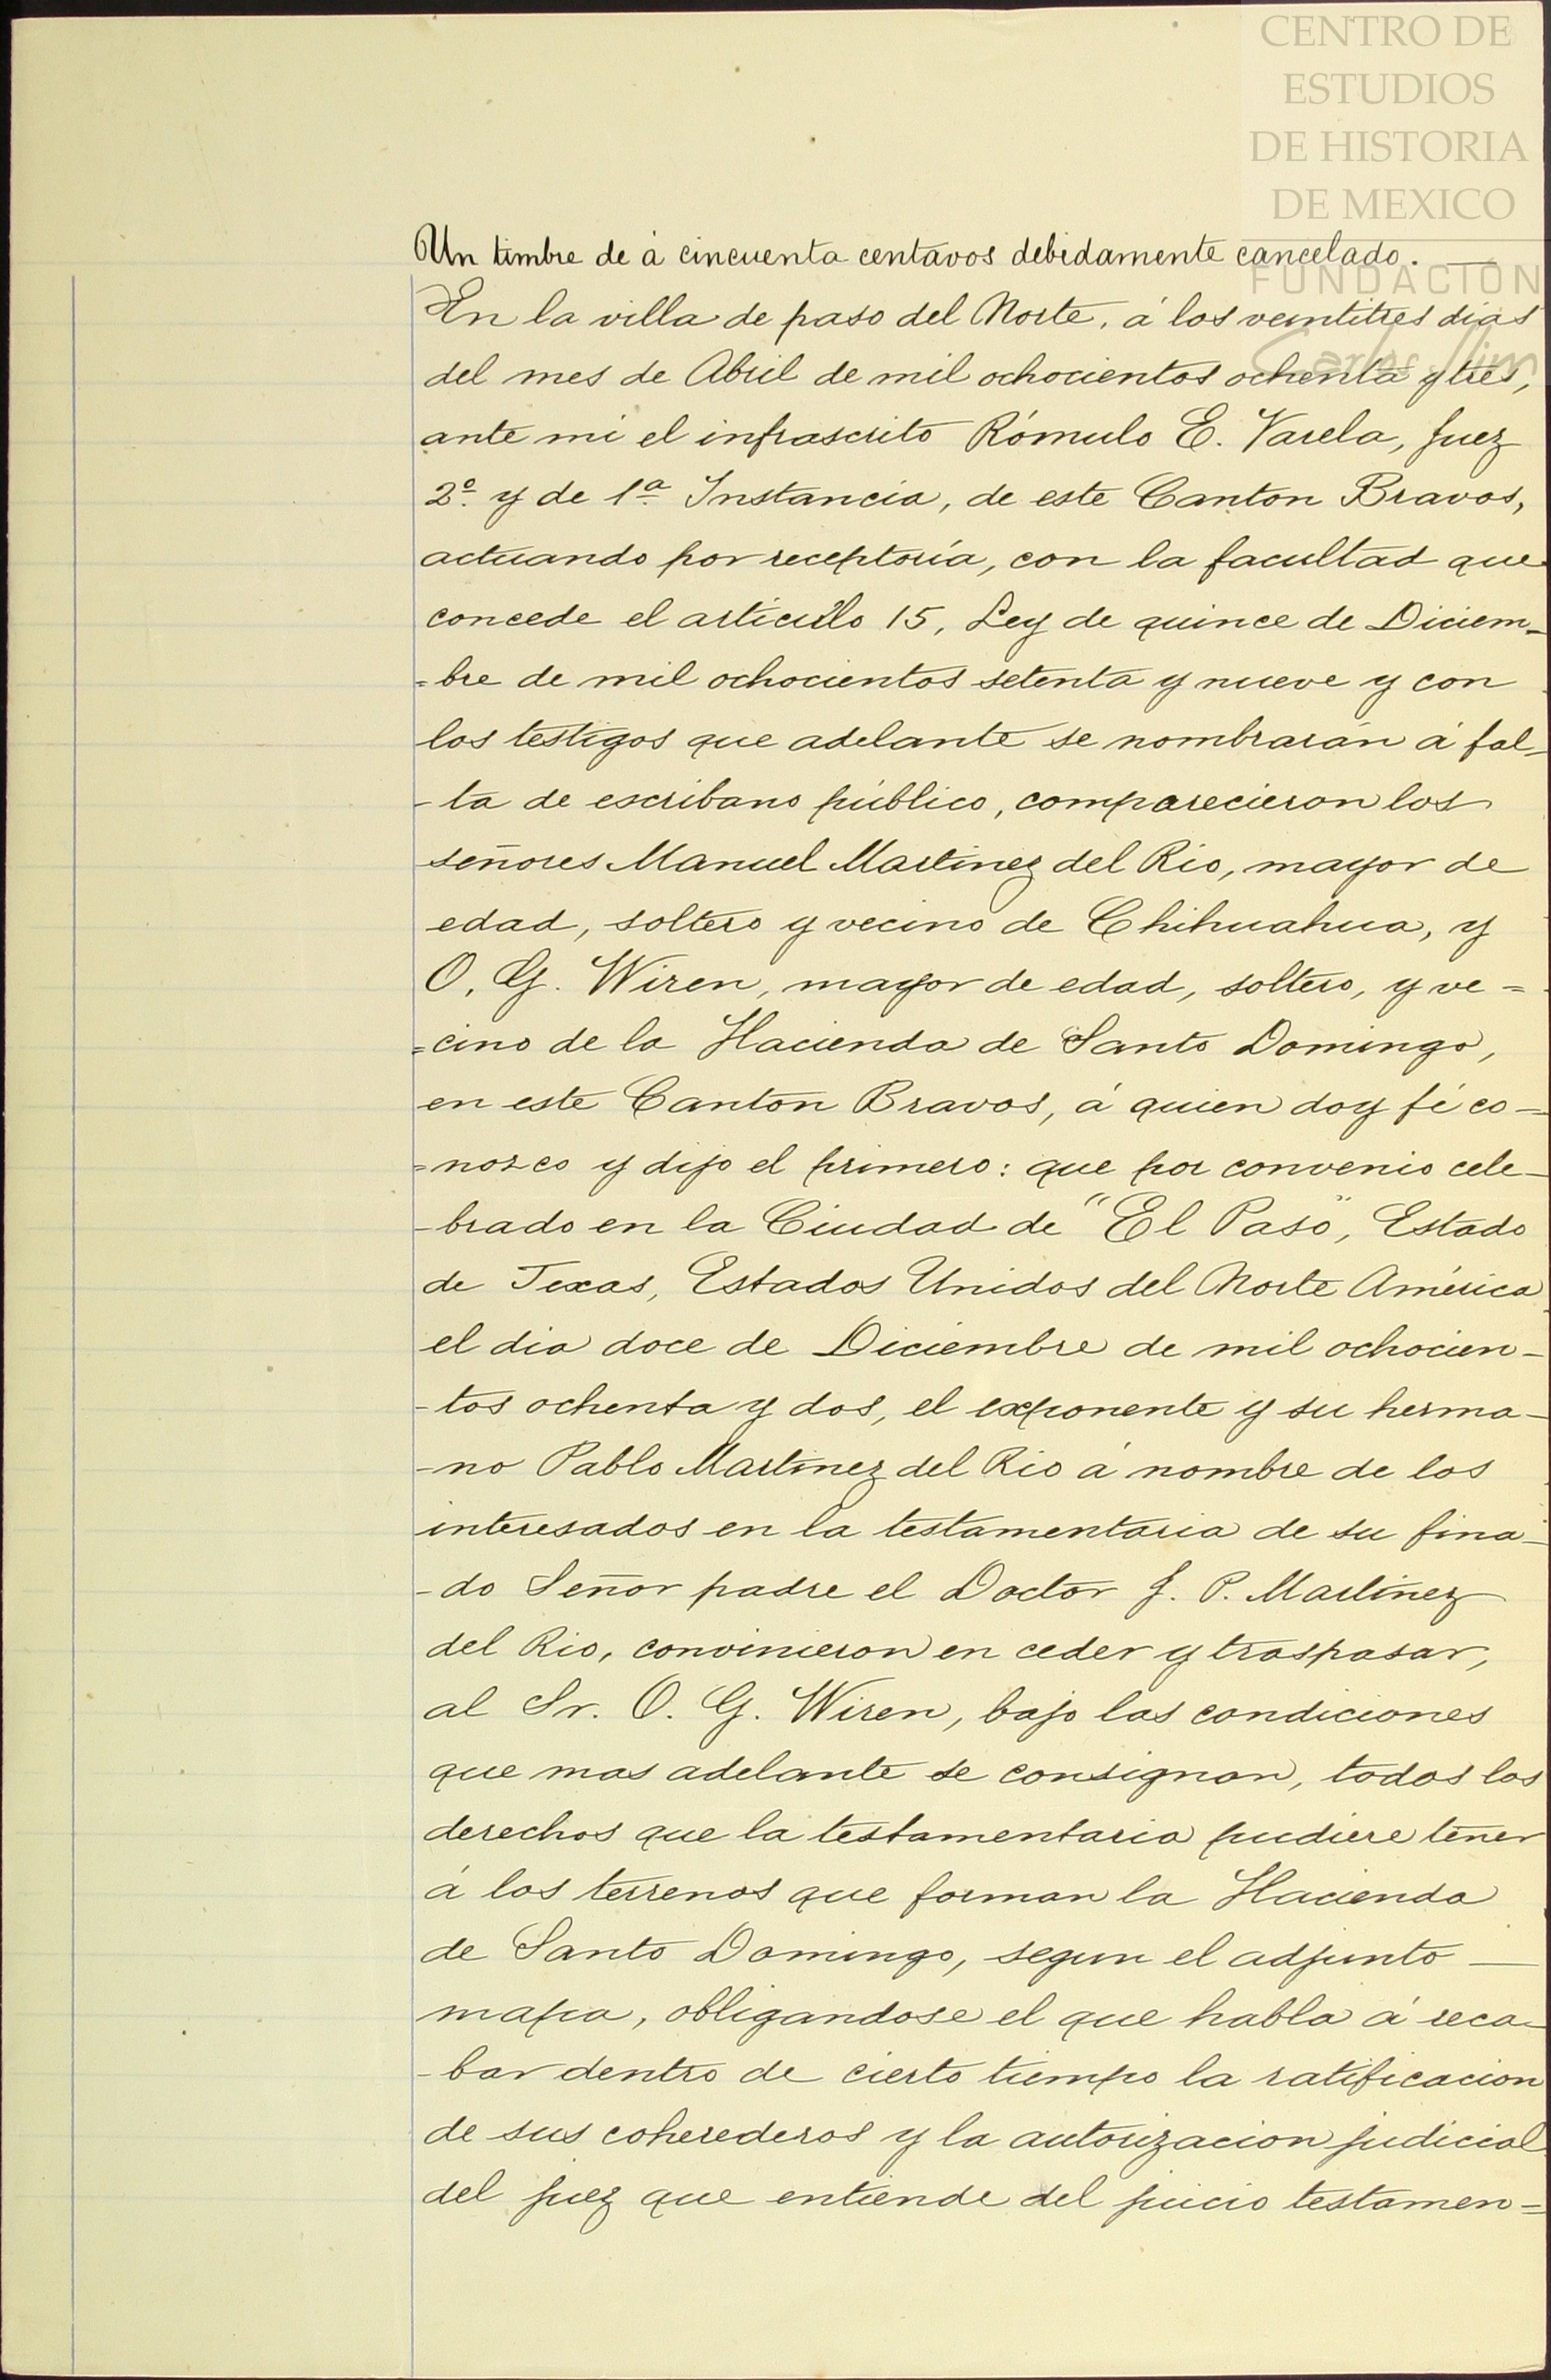 CENTRO DE
ESTUDIOS
DE HISTORIA
DE MEXICO
FUNDACIÓN
Carlos Slim
Un timbre de á cincuenta centavos debidamente cancelado. —
En la villa de paso del Norte, á los veintitres dias
del mes de Abril de mil ochocientos ochenta y tres,
ante mi el infrascrito Rómulo E. Varela, Juez
2º. y de 1ª Instancia, de este Canton Bravos,
actuando por receptoria, con la facultad que
concede el artículo 15, Ley de quince de Diciem-
=bre de mil ochocientos setenta y nueve y con
los testigos que adelante se nombrarán á fal-
-ta de escribano público, comparecieron los
señores Manuel Martinez del Rio, mayor de
edad, soltero y vecino de Chihuahua, y
O. G. Wiren, mayor de edad, soltero, y ve=
=cino de la Hacienda de Santo Domingo,
en este Canton Bravos, á quien doy fé co=
=nozco y dijo el primero: que por convenio cele-
-brado en la Ciudad de "El Paso", Estado
de Texas, Estados Unidos del Norte América
el dia doce de Diciembre de mil ochocien-
-tos ochenta y dos, el exponente y su herma-
-no Pablo Martinez del Rio á nombre de los
interesados en la testamentaria de su fina-
-do Señor padre el Doctor J. P. Martinez
del Rio, convinieron en ceder y traspasar,
al Sr. O. G. Wiren, bajo las condiciones
que mas adelante se consignan, todos los
derechos que la testamentaria pudiere tener
á los terrenos que forman la Hacienda
de Santo Domingo, segun el adjunto —
mapa, obligandose el que habla á reca-
-bar dentro de cierto tiempo la ratificacion
de sus coherederos y la autorizacion judicial
del juez que entiende del juicio testamen=